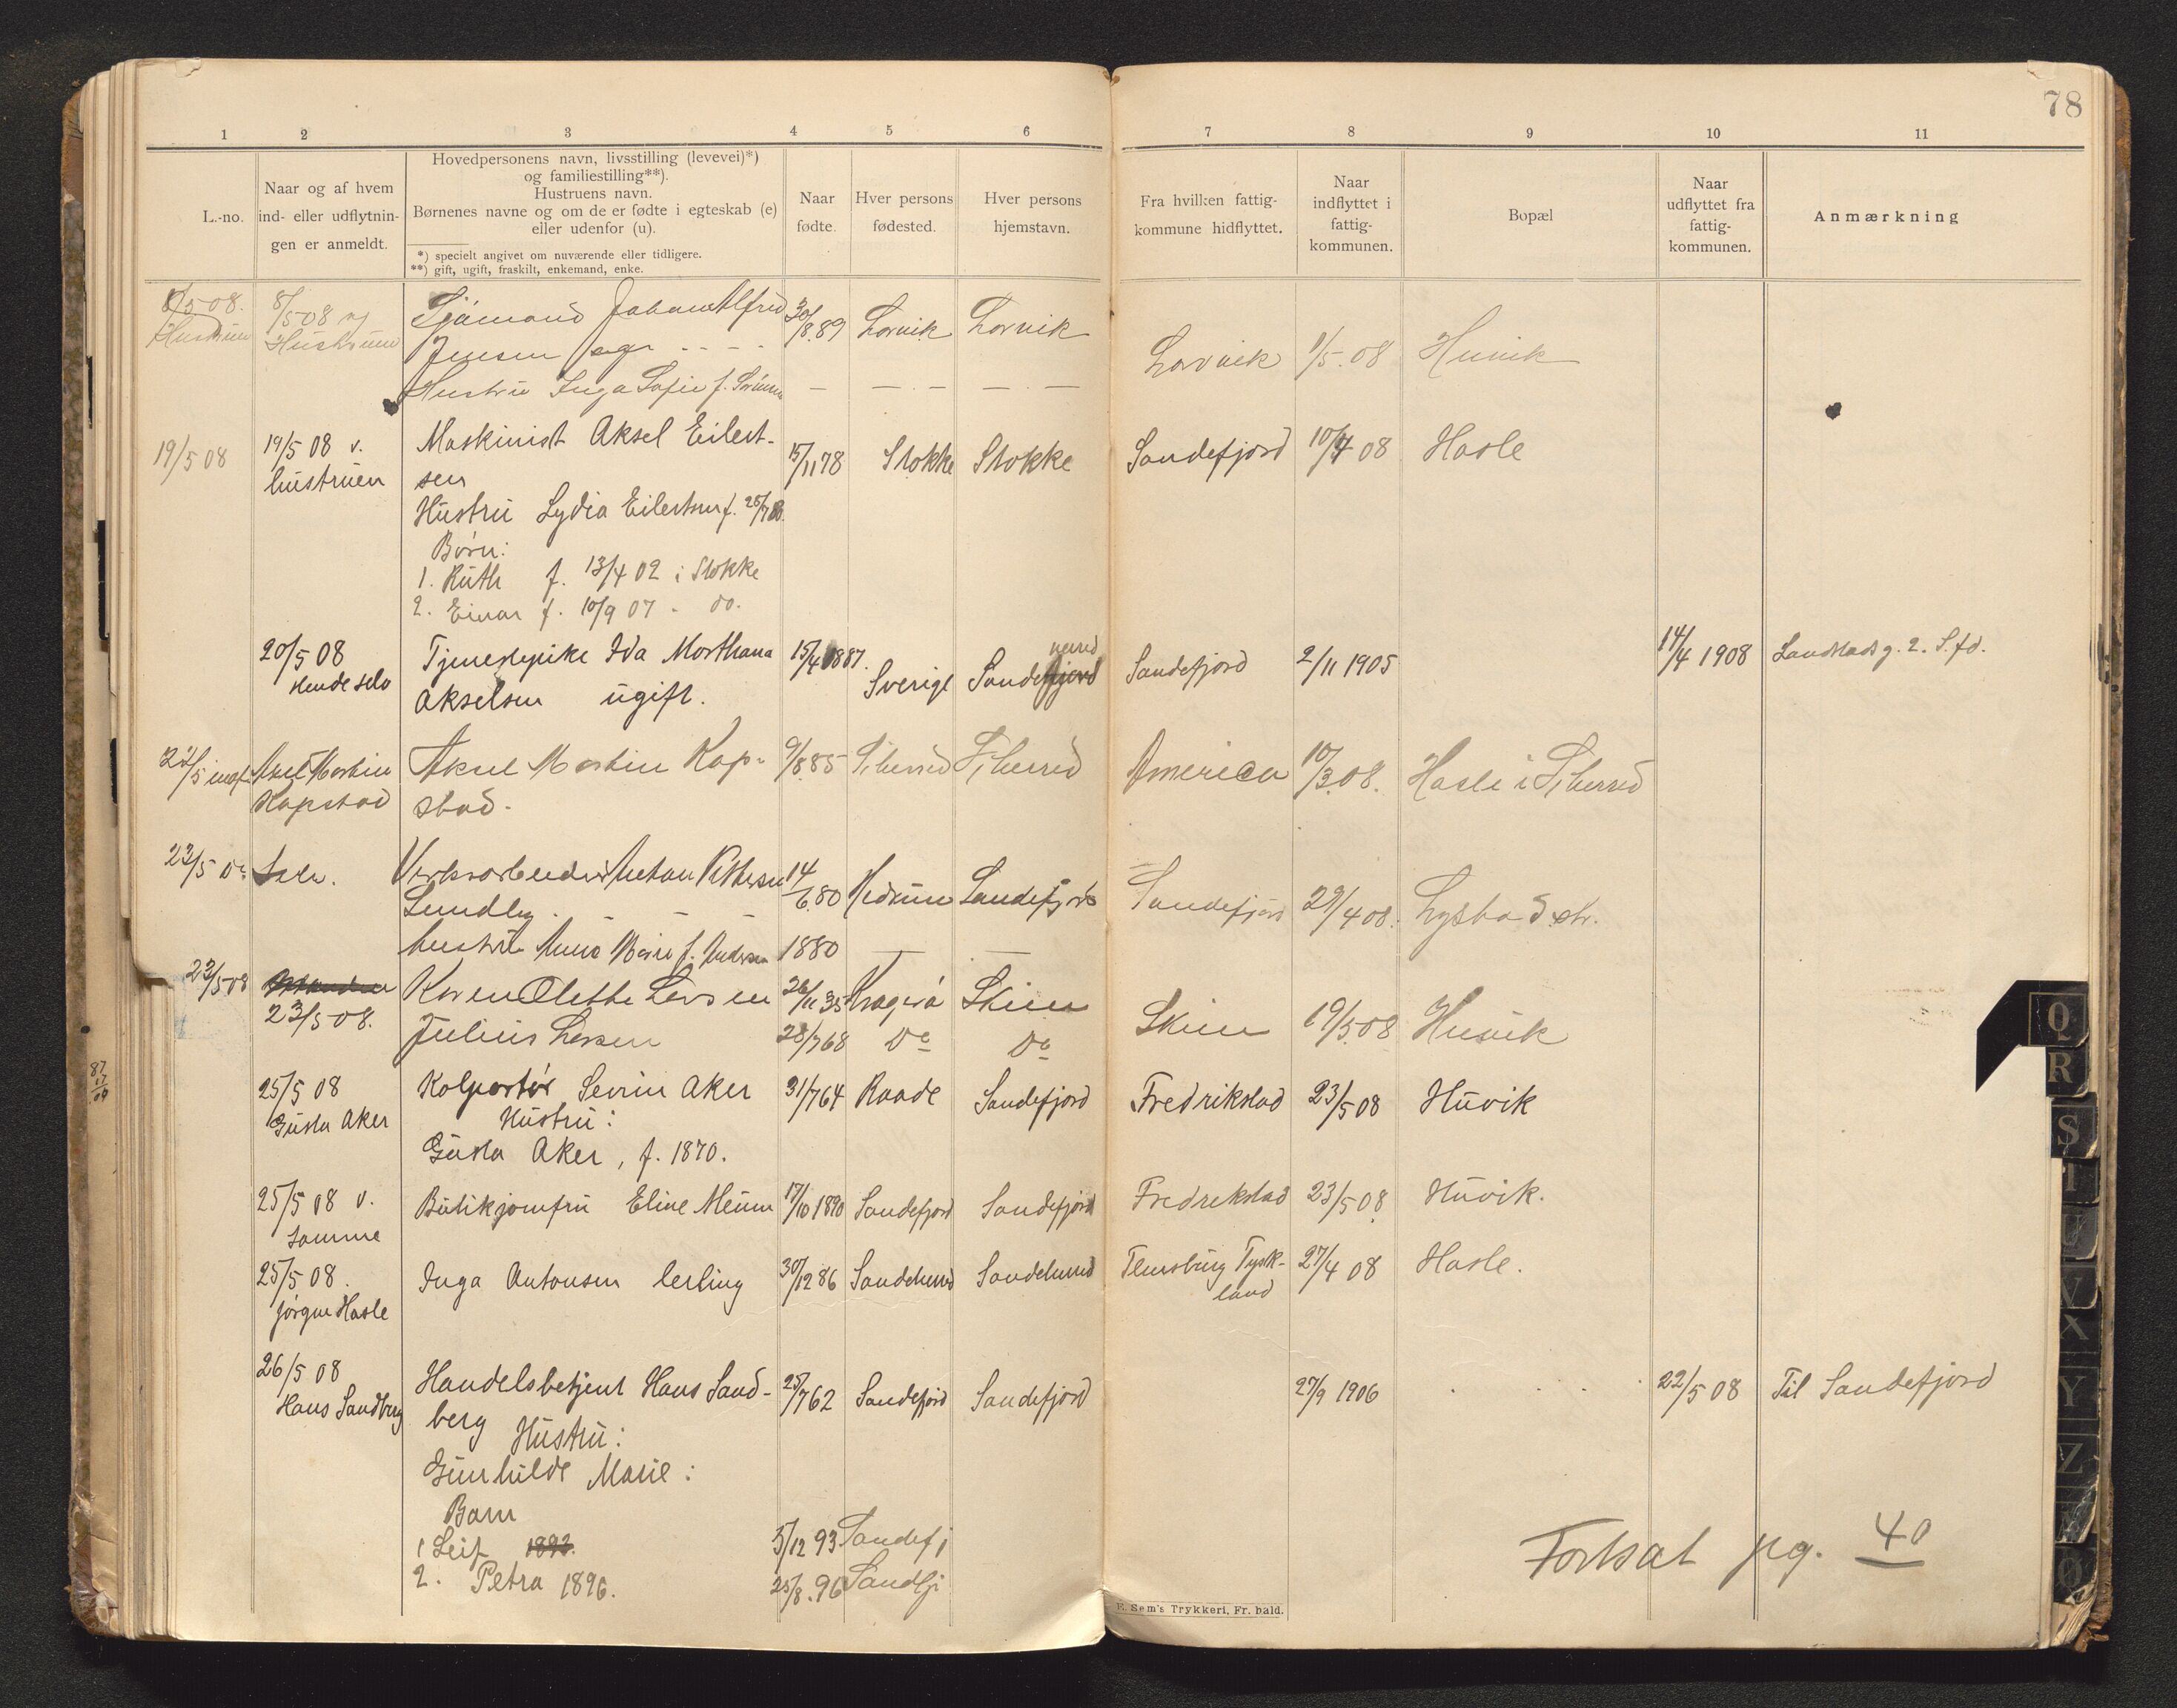 78
1 2 3 4 5 6 7 8 9 10 11
L.-no.
Naar og af hvem
ind- eller udflytnin-
gen er anmeldt.
Hovedpersonens navn, livsstilling (levevei)*)
og familiestilling**).
Hustruens navn.
Børnenes navne og om de er fødte i egteskab (e)
eller udenfor (u).
*) specielt angivet om nuværende eller tidligere.
**) gift, ugift, fraskilt, enkemand, enke.
Naar
fødte.
Hver persons
fødested.
Hver persons
hjemstavn.
Fra hvilken fattig-
kommune hidflyttet.
Naar
indflyttet i
fattig-
kommunen.
Bopæl
Naar
udflyttet fra
fattig-
kommunen.
Anmærkning
8/5 08. 8/5 08 Sjømand Johan Alfred 30/8.89 Larvik Larvik
Hustruen Hustruen Jensen Larvik 1/5.08 Huvik
Hustru Inga Sofie f. — — — — —
19/5 08 19/5 08 v. Maskinist Aksel Eilert- 15/11 78 Stokke Stokke Sandefjord 10/4 08 Hasle
hustruen sen
Hustru Lydia Eilertsen f. 25/7 80.
Børn:
1. Ruth f. 13/4 02 i Stokke
2. Einar f. 10/9 07 - do.
20/5 08 Tjenestepike Ida Marthana 15/4 1887. Sverige Sandefjord herred Sandefjord 2/11 1905 14/4 1908 Landstads g. 2. S.fd.
Hende selv Akselsen ugift.
22/5 Axel Martin Aksel Martin Kap- 9/8.85 Sj herred Sj herred America 10/3.08. Hasle i Sj herred
Kapstad stad.
23/5 Do Selv. Verksarbeider Anton Pettersen 14/6.80 Hedrum Sandefjord Sandefjord 29/4 08. Lystad str.
Lundby.
hustru Anna Marie f. Andersen 1880 — —
23/5 08 Karen Olette Larsen 26/11 35 Kragerø Skien Skien 19/5.08 Huvik
23/5 08. Julius Larsen 28/7 68 Do Do
25/5 08 Kolportør Sevrin Aker 31/7 64 Raade Sandefjord Fredrikstad 23/5 08 Huvik
Gusta Aker Hustru:
Gusta Aker, f. 1870.
25/5 08 v. Butikjomfru Eline Meum 17/10 1890 Sandefjord Sandefjord Fredrekstad 23/5 08. Huvik.
samme
25/5 08. Inga Antonsen lerling 30/12 86 Sandeherred Sandeherred Flensburg Tysk- 27/4 08 Hasle.
Jørgen Hasle land
26/5 08 Handelsbetjent Hans Sand- 25/7 62 Sandefjord Sandefjord 27/9 1906 22/5 08 Til Sandefjord
Hans Sandberg berg Hustru:
Gunhilde Marie:
Barn
1 Leif 1893. 3/12 93 Sandefj
2. Petra 1896. 25/8.96 Sandefj
Fortsat pg. 40
E. Sem's Trykkeri, Fr. hald.
Q
R
S
T
U
V
X
Y
Z
Ø